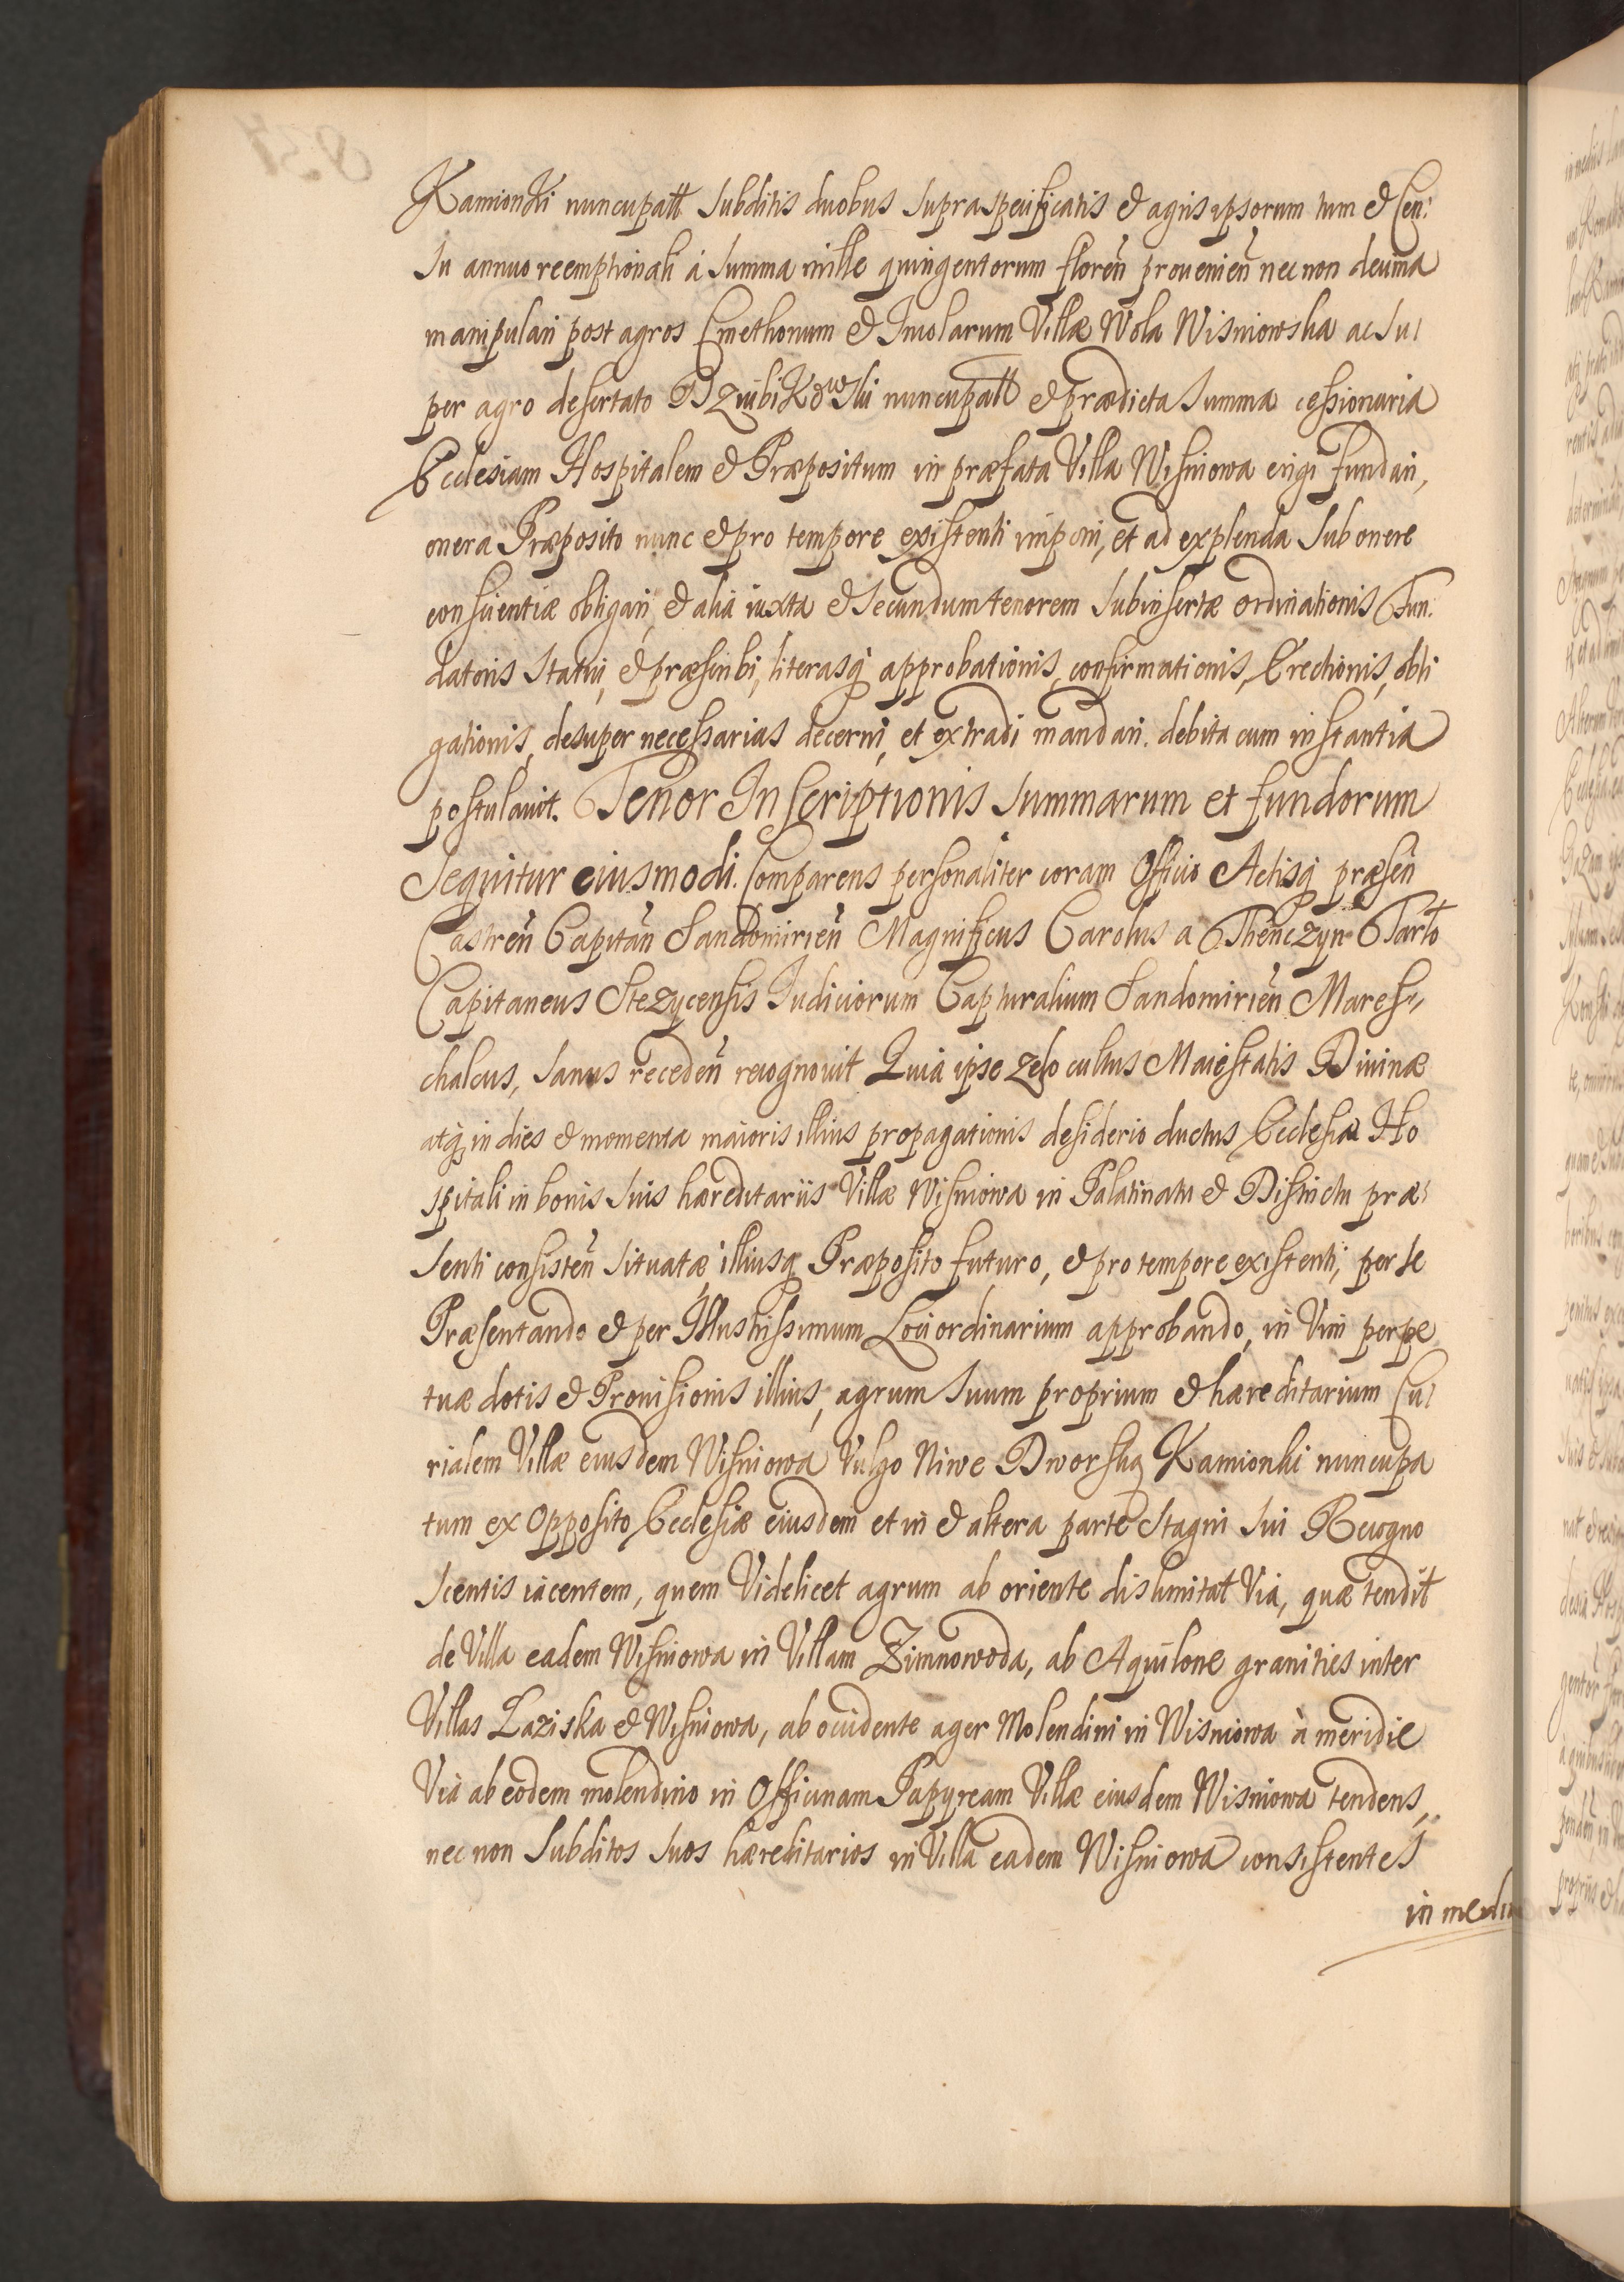 Kamionki nuncupatt Subditis duobus supraspecificatis & agris ipsorum tum & Cen:
su annuo reemptionali á Summa mille quingentorum floreñ prouenieñ nec non decima
manipulari post agros Cmethonum & Incolarum Villæ Wola Wisniowska ac su
per agro desertato Dziubikowski nuncupatt & prædicta Summa cessionaria
Ecclesiam Hospitalem & Præpositum in præfata Villa Wisniowa erigi fundari,
onera Præposito nunc & pro tempore existenti imponi, et ad explenda sub onere
conscientiæ obligari, & alia iuxta & secundum tenorem subinsertæ ordinationis Fun:
datoris statui, & præscribi, literasq approbationis, confirmationis, Erectionis, obli
gationis, desuper necessarias decerni, et extradi mandari. debita cum instantia
postulauit. Tenor Inscriptionis summarum et fundorum
sequitur eiusmodi. Comparens personaliter coram Officio Actisq præseñ
Castreñ Capitañ Sandomirieñ Magnificus Carolus a Thenczyn Tarło
Capitaneus Stezycensis Iudiciorum Capturalium Sandomirieñ Mares-
chalcus, sanus recedeñ recognouit Quia ipse zelo cultus Maiestatis Diuinæ
atq, in dies & momenta maioris illius propagationis desiderio ductus Ecclesiæ Ho
spitali in bonis suis hæreditariis Villæ Wisniowa in Palatinatu & Districtu præ
senti consisteñ situatæ, illiusq Præposito futuro, & pro tempore existenti, per se
Præsentando & per Illustrissimum Loci ordinarium approbando, in Vim perpe
tuæ dotis & Prouisionis illius, agrum suum proprium & hæreditarium Cu
rialem Villæ eiusdem Wisniowa Vulgo Niwe Dworską Kamionki nuncupa
tum ex Opposito Ecclesiæ eiusdem et in & altera parte Stagni sui Recogno
scentis iacentem, quem Videlicet agrum ab oriente dislimitat Via, quæ tendit
de Villa eadem Wisniowa in Villam Zimnowoda, ab Aquilone granities inter
Villas Łaziska & Wisniowa, ab occidente ager Molendini in Wisniowa à meridie
Via ab eodem molendino in Officinam Papyream Villæ eiusdem Wisniowa tendens,
nec non Subditos suos hæreditarios in Villa eadem Wisniowa consistentes